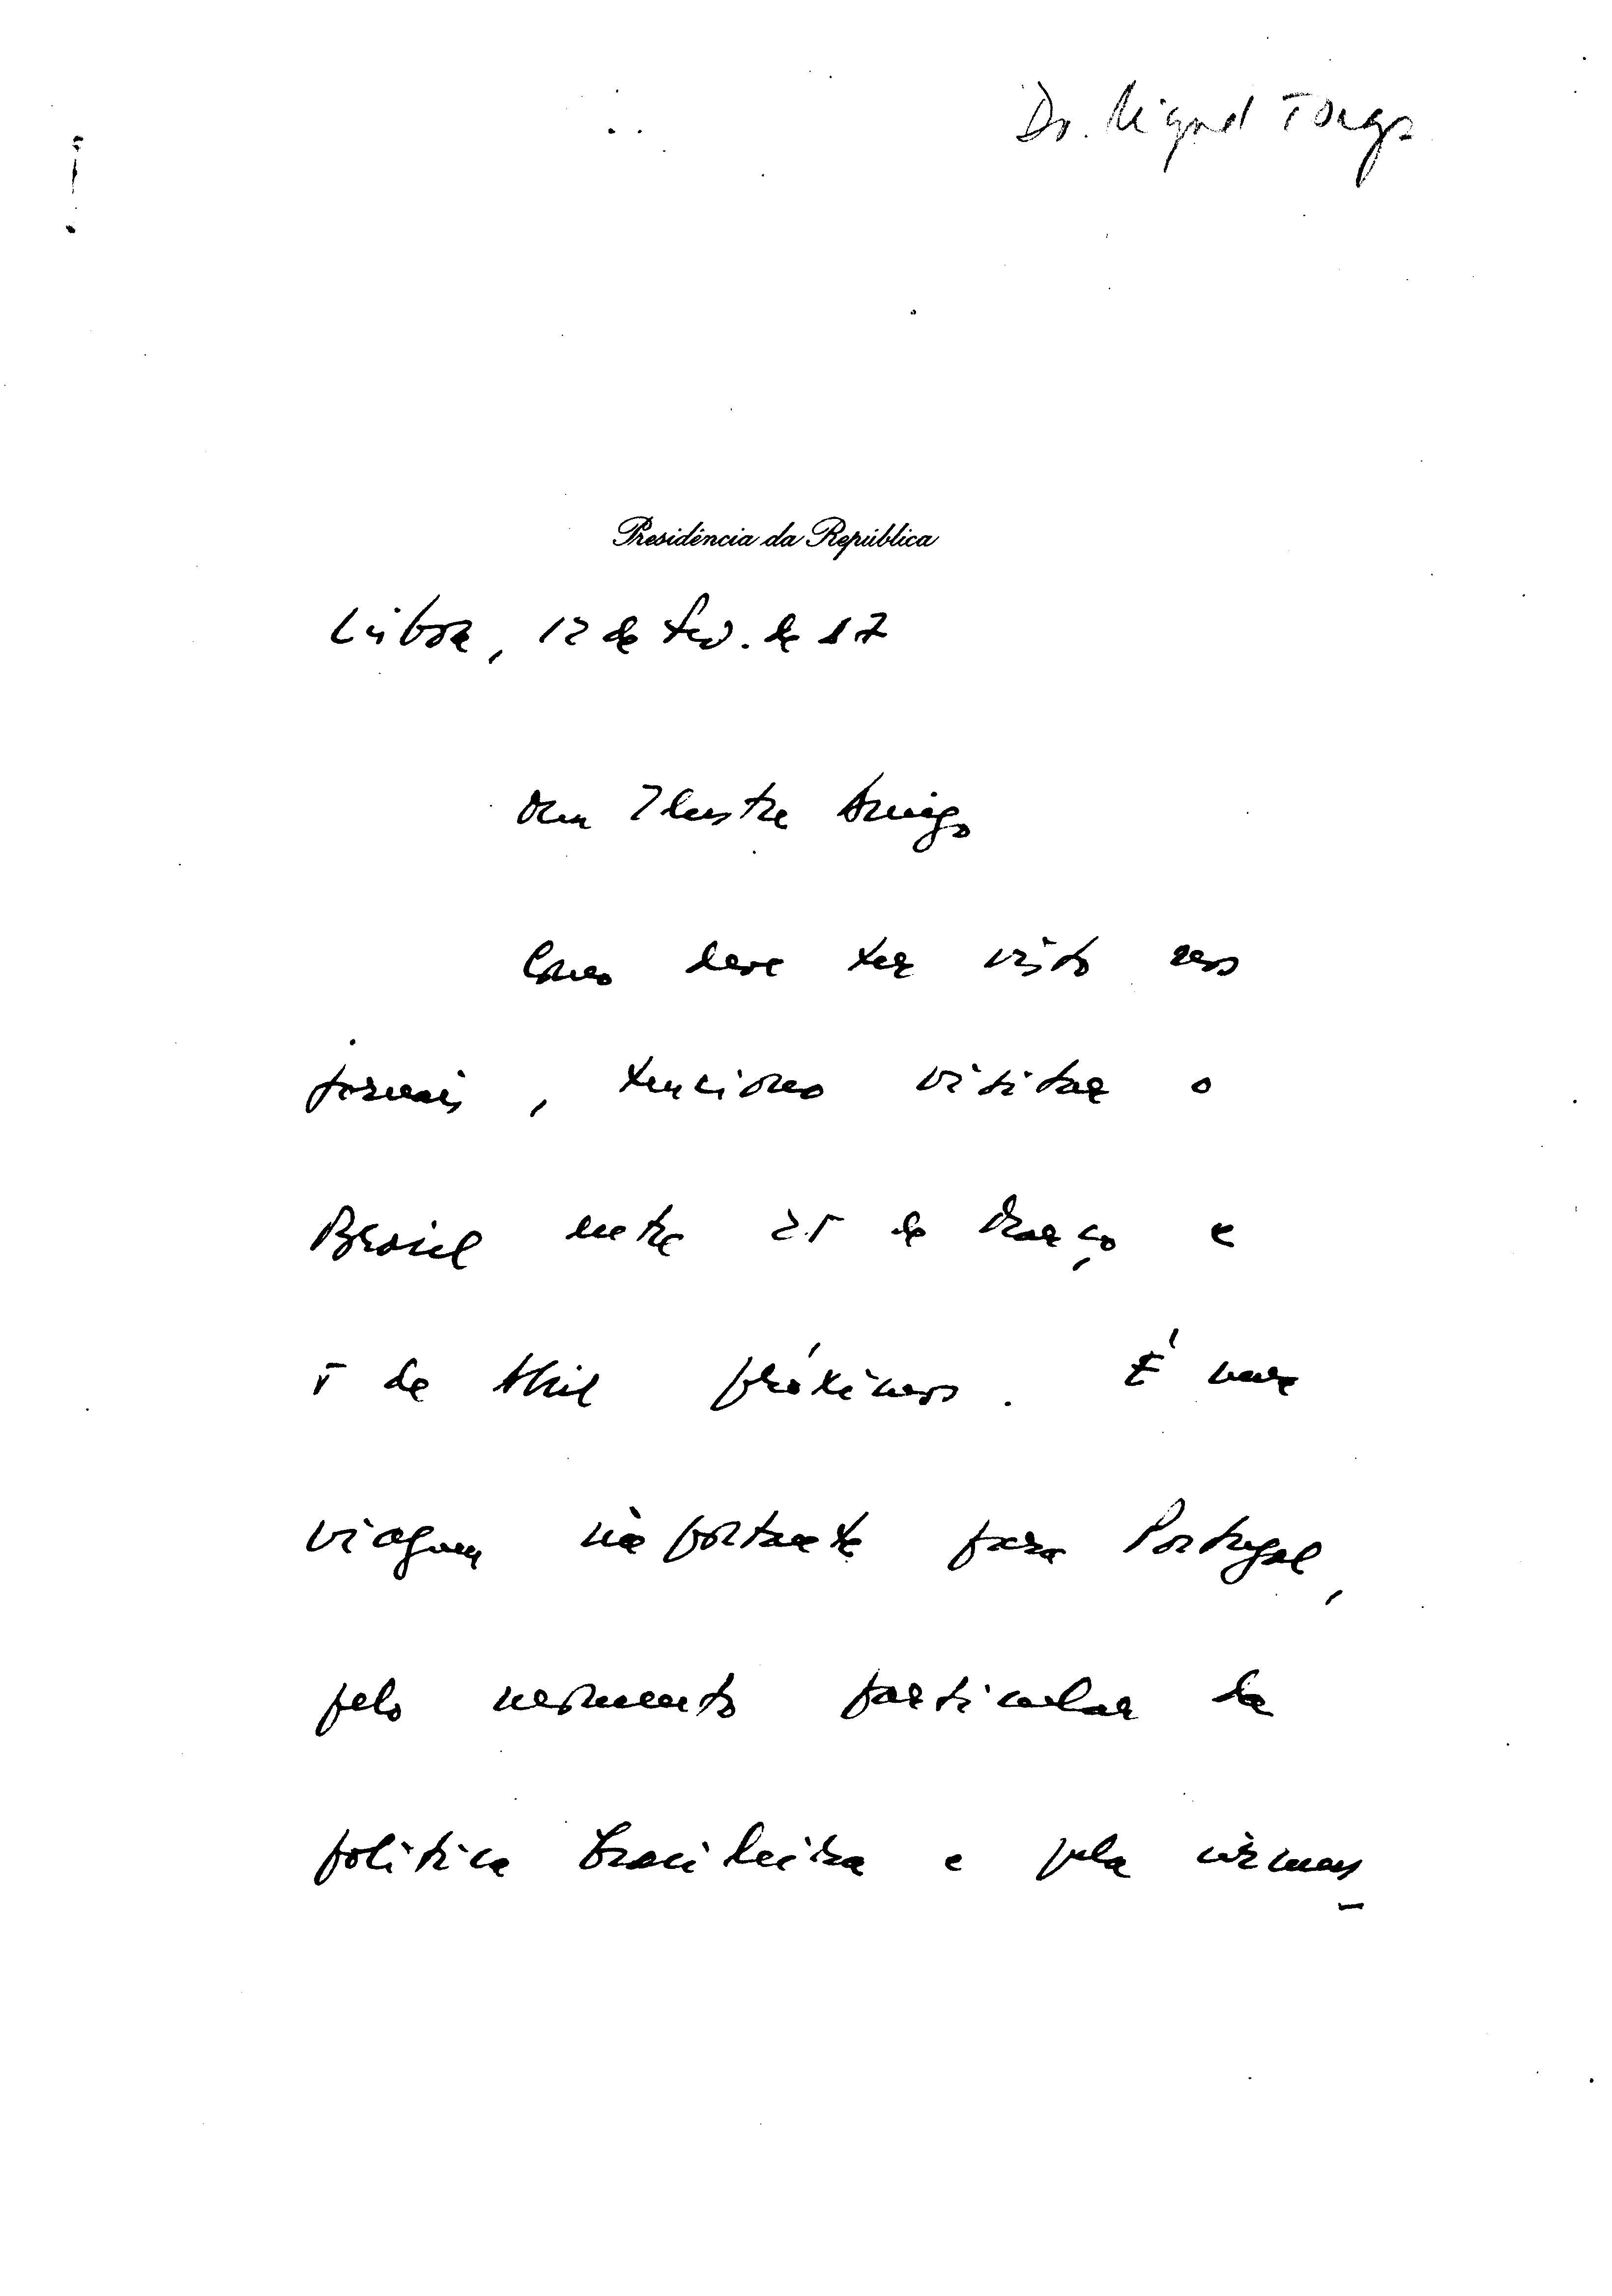 Dr. Miguel Torga
Presidência da República
Lisboa, 12 de Fev. de 87
Meu Ilustre Amigo
Como deve ter visto nos
jornais, tenciono visitar o
Brasil entre 25 de Março e
5 de Abril próximos. É uma
viagem importante para Portugal,
pelo momento particular da
política brasileira e pela